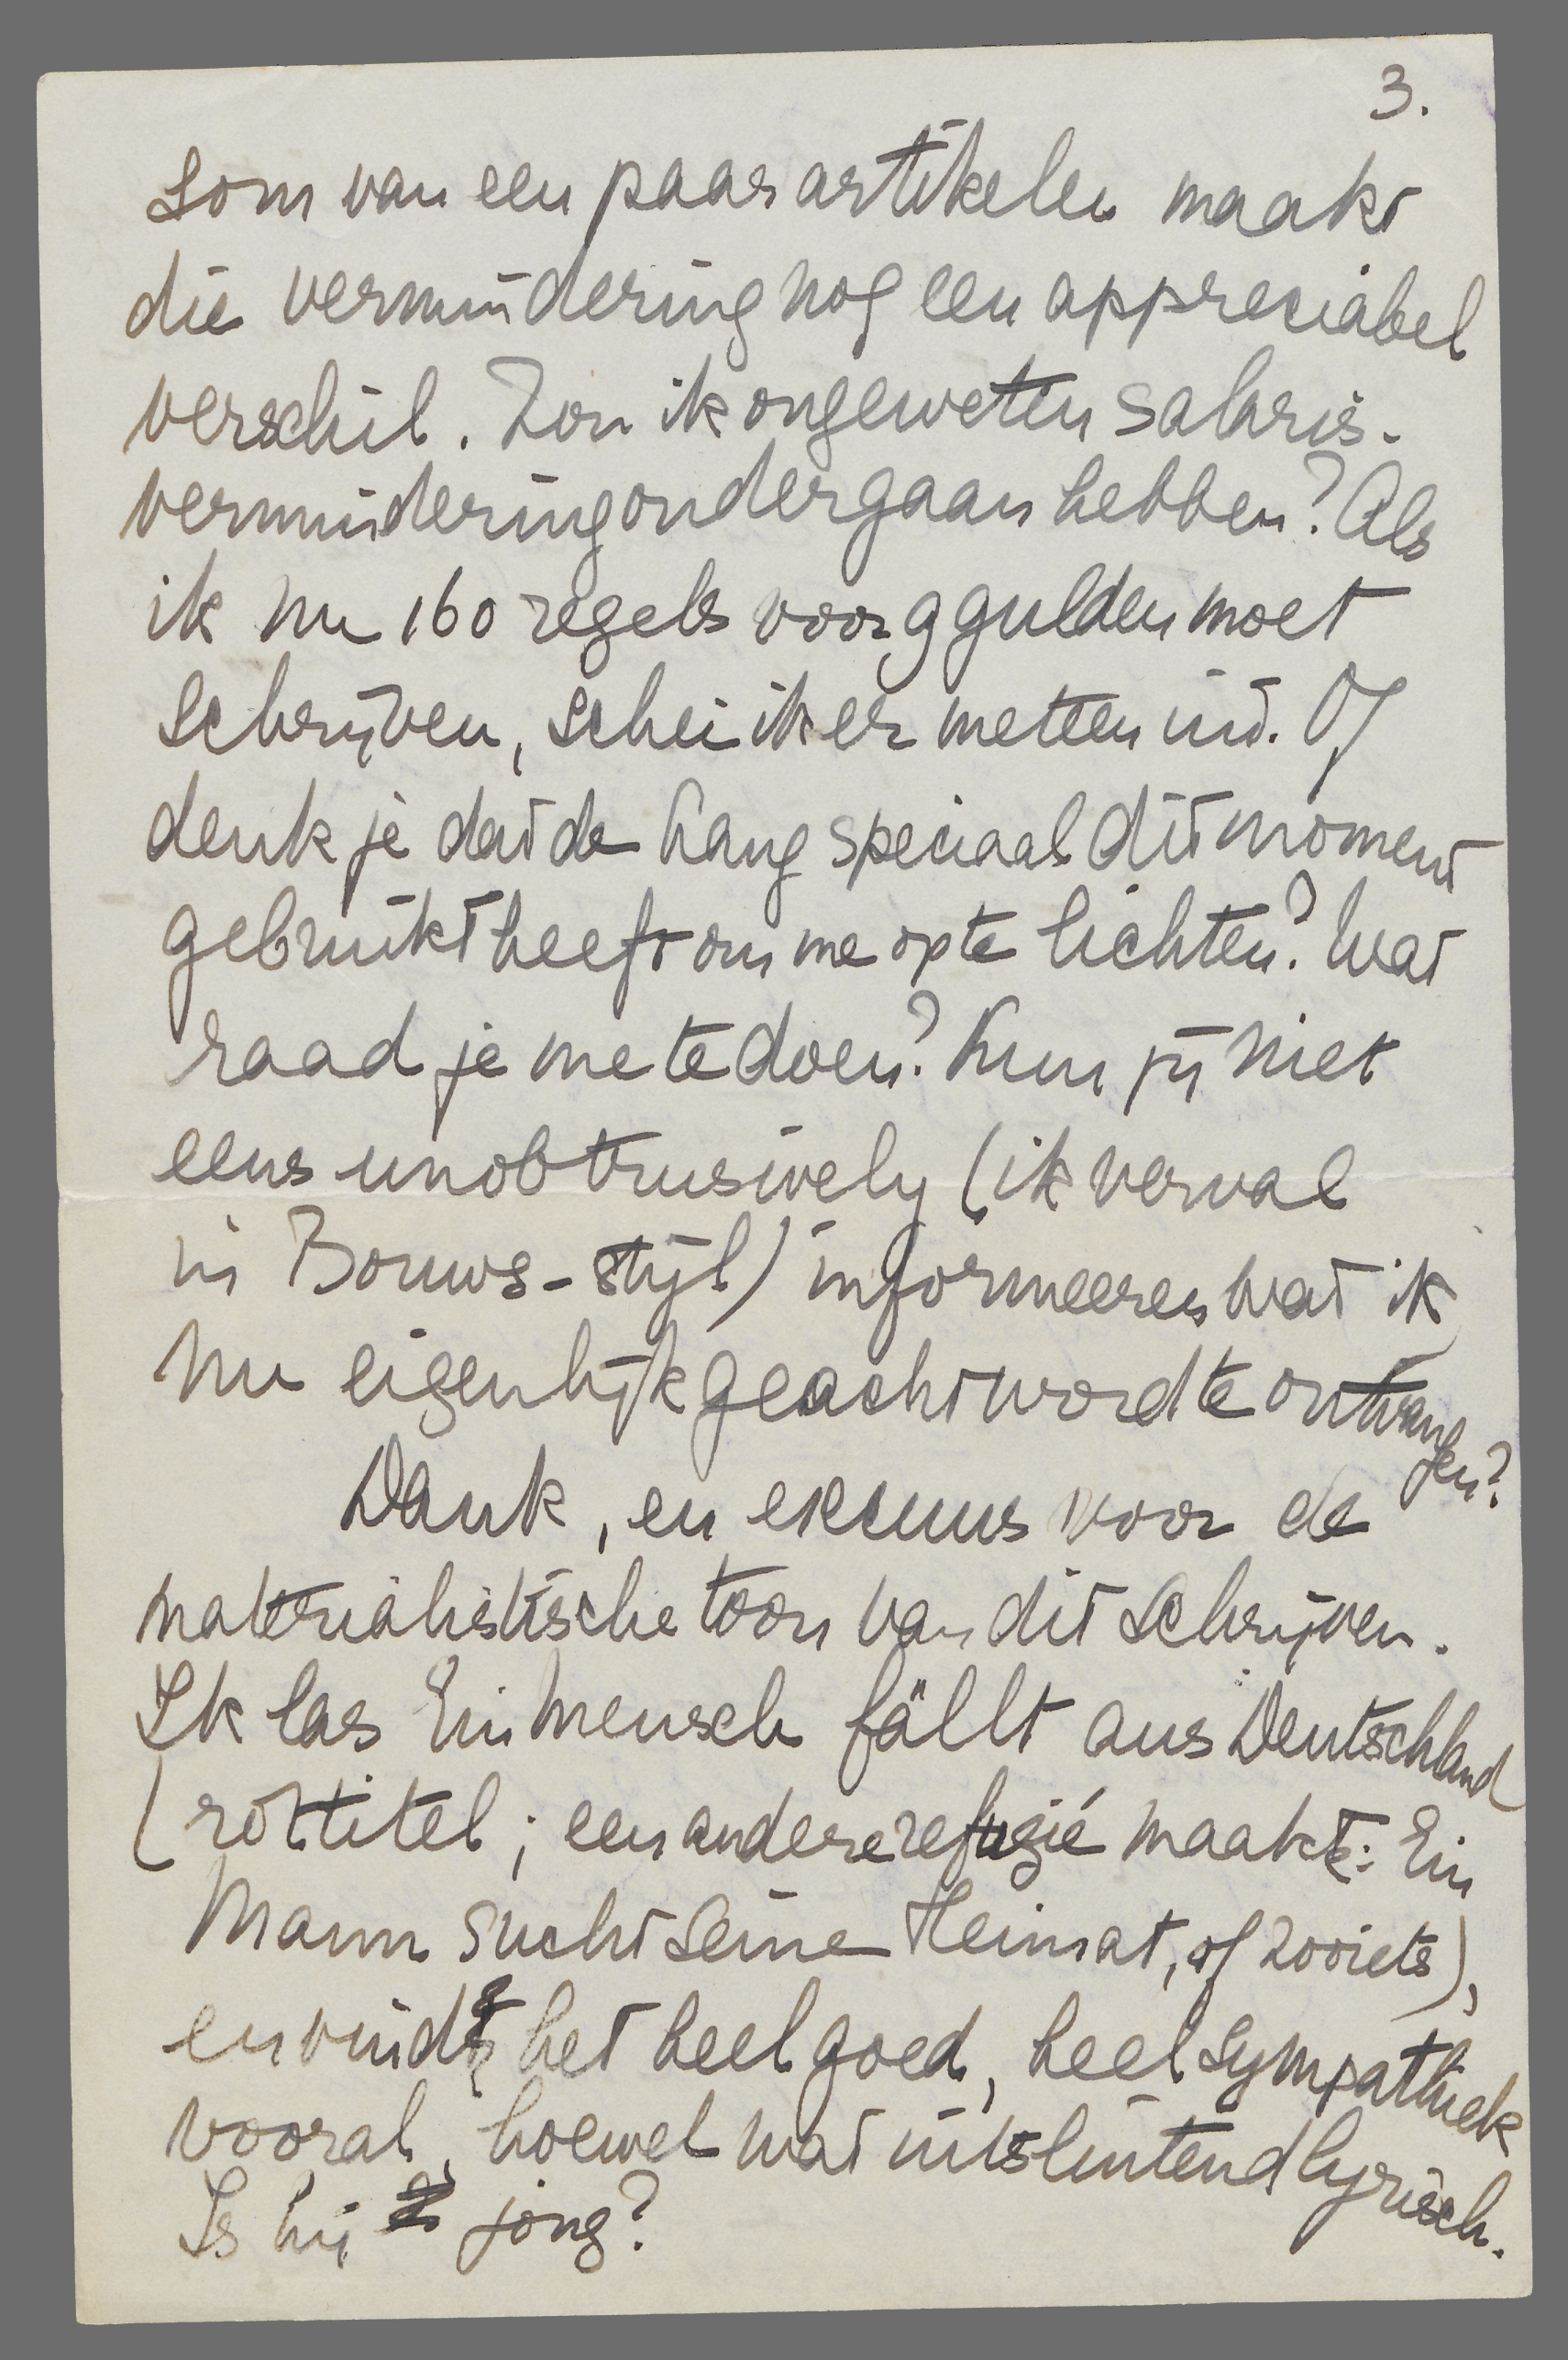 3.
som van een paar artikelen maakt
die vermindering nog een appreciabel
verschil. Zou ik ongeweten salaris-
vermindering ondergaan hebben? Als
ik nu 160 regels voor 9 gulden moet
schrijven, schei ik er meteen uit. Of
denk je dat de Lang speciaal dit moment
gebruikt heeft om me op te lichten? Wat
raad je me te doen? Kun jij niet
eens unobtrusively (ik verval
in Bouws-stijl) informeeren wat ik
nu eigenlijk geacht word te ontvangen?
Dank, en excuus voor de
materialistische toon van dit schrijven.
Ik las Ein Mensch fällt aus Deutschland
(rottitel; een andere refugié maakt: Ein
Mann sucht seine Heimat, of zooiets),
en vind het heel goed, heel sympathiek
vooral, hoewel wat uitsluitend lyrisch.
Is hij jong?